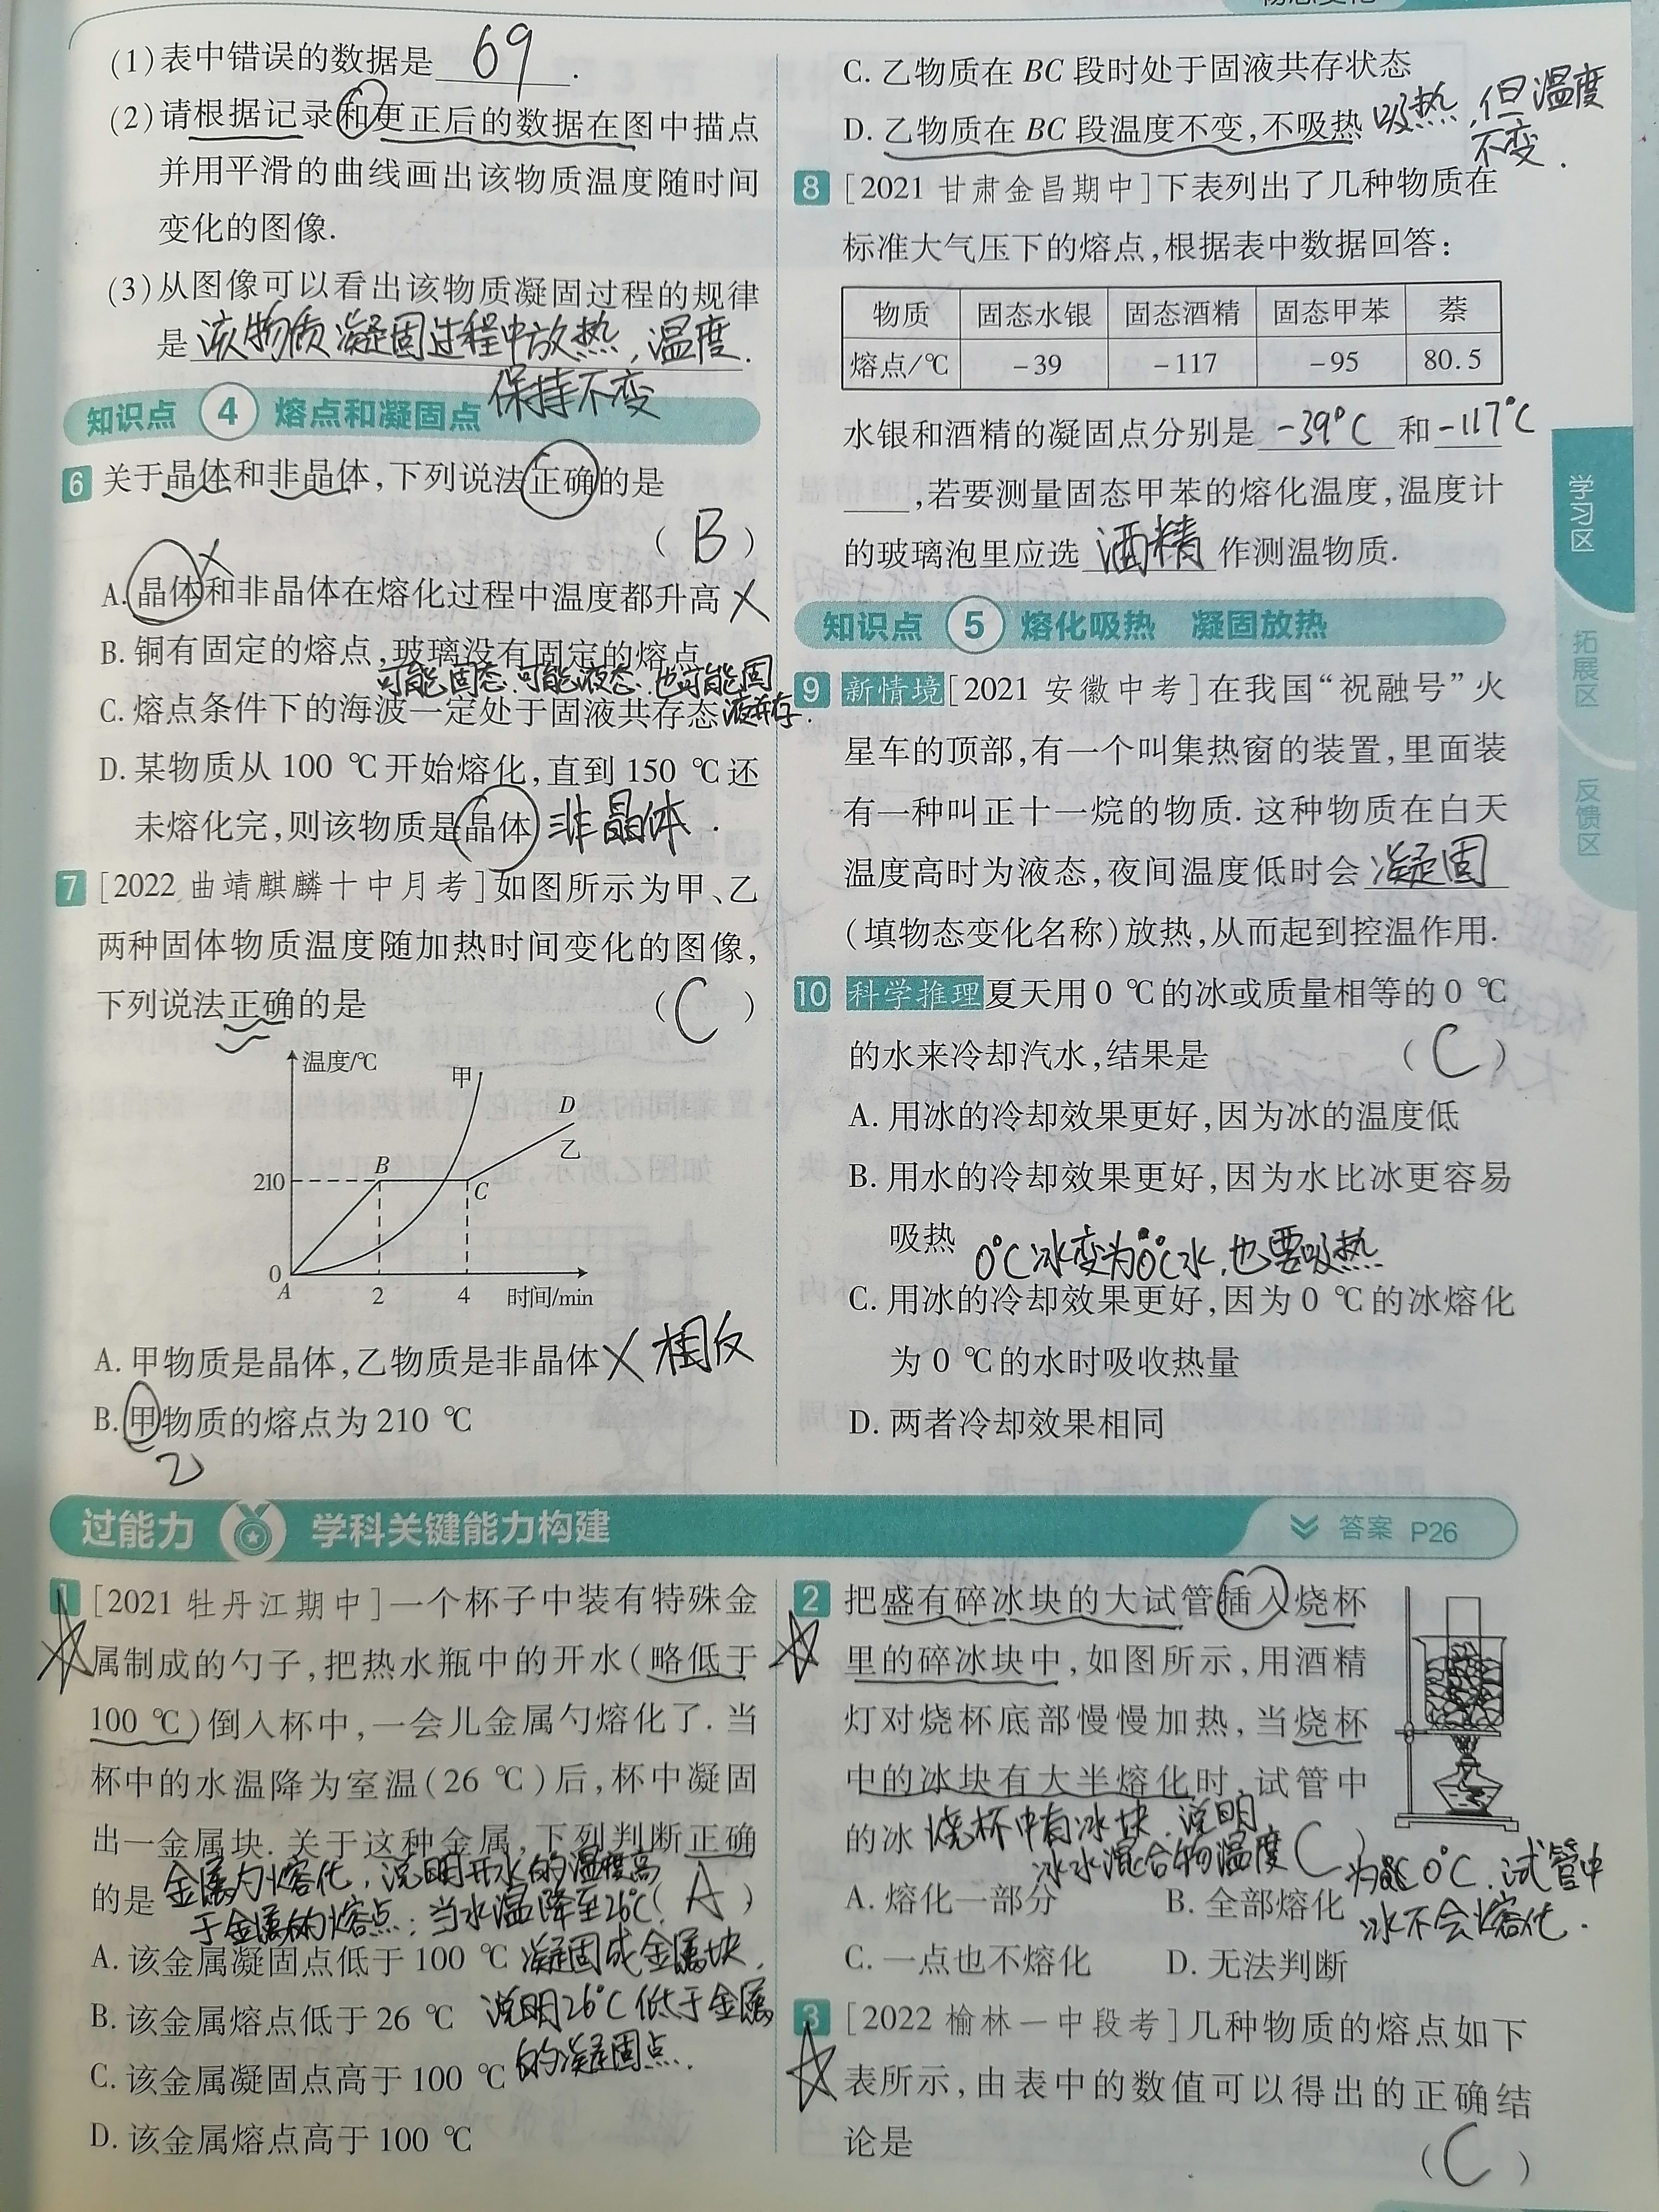 (1)表中错误的数据是 69 .
(2)请根据记录和更正后的数据在图中描点
并用平滑的曲线画出该物质温度随时间
变化的图像.
(3)从图像可以看出该物质凝固过程的规律
是 该物质凝固过程中放热,温度.
保持不变
知识点 4 熔点和凝固点
6 关于晶体和非晶体,下列说法正确的是
( B )
A. 晶体和非晶体在熔化过程中温度都升高 ×
B. 铜有固定的熔点,玻璃没有固定的熔点
可能固态、可能液态、也可能固
C. 熔点条件下的海波一定处于固液共存态 液共存.
D. 某物质从 100 ℃开始熔化,直到 150 ℃还
未熔化完,则该物质是晶体 非晶体.
7 [2022 曲靖麒麟十中月考]如图所示为甲、乙
两种固体物质温度随加热时间变化的图像,
下列说法正确的是 ( C )
温度/℃
甲
D
乙
B
210
C
0
A 2 4 时间/min
A. 甲物质是晶体,乙物质是非晶体 × 相反
B. 甲物质的熔点为 210 ℃
乙
C. 乙物质在 BC 段时处于固液共存状态
D. 乙物质在 BC 段温度不变,不吸热 吸热,但温度
不变.
8 [2021 甘肃金昌期中]下表列出了几种物质在
标准大气压下的熔点,根据表中数据回答:
物质 固态水银 固态酒精 固态甲苯 萘
熔点/℃ -39 -117 -95 80.5
水银和酒精的凝固点分别是 -39℃ 和 -117℃
,若要测量固态甲苯的熔化温度,温度计
的玻璃泡里应选 酒精 作测温物质.
知识点 5 熔化吸热 凝固放热
9 新情境[2021 安徽中考]在我国“祝融号”火
星车的顶部,有一个叫集热窗的装置,里面装
有一种叫正十一烷的物质. 这种物质在白天
温度高时为液态,夜间温度低时会 凝固
(填物态变化名称)放热,从而起到控温作用.
10 科学推理 夏天用 0 ℃的冰或质量相等的 0 ℃
的水来冷却汽水,结果是 ( C )
A. 用冰的冷却效果更好,因为冰的温度低
B. 用水的冷却效果更好,因为水比冰更容易
吸热 0℃冰变为0℃水,也要吸热
C. 用冰的冷却效果更好,因为 0 ℃的冰熔化
为 0 ℃的水时吸收热量
D. 两者冷却效果相同
学习区
拓展区
反馈区
过能力 学科关键能力构建 答案 P26
1 [2021 牡丹江期中]一个杯子中装有特殊金
属制成的勺子,把热水瓶中的开水(略低于
100 ℃)倒入杯中,一会儿金属勺熔化了. 当
杯中的水温降为室温(26 ℃)后,杯中凝固
出一金属块. 关于这种金属,下列判断正确
金属勺熔化,说明开水的温度高
的是 ( A )
于金属的熔点;当水温降至26℃
A. 该金属凝固点低于 100 ℃ 凝固成金属块,
B. 该金属熔点低于 26 ℃ 说明26℃低于金属
C. 该金属凝固点高于 100 ℃ 的凝固点.
D. 该金属熔点高于 100 ℃
2 把盛有碎冰块的大试管插入烧杯
里的碎冰块中,如图所示,用酒精
灯对烧杯底部慢慢加热,当烧杯
中的冰块有大半熔化时,试管中
的冰 烧杯中有冰块,说明 ( C )
冰水混合物温度 为 0℃,试管中
A. 熔化一部分 B. 全部熔化 冰不会熔化.
C. 一点也不熔化 D. 无法判断
3 [2022 榆林一中段考]几种物质的熔点如下
表所示,由表中的数值可以得出的正确结
论是 ( C )